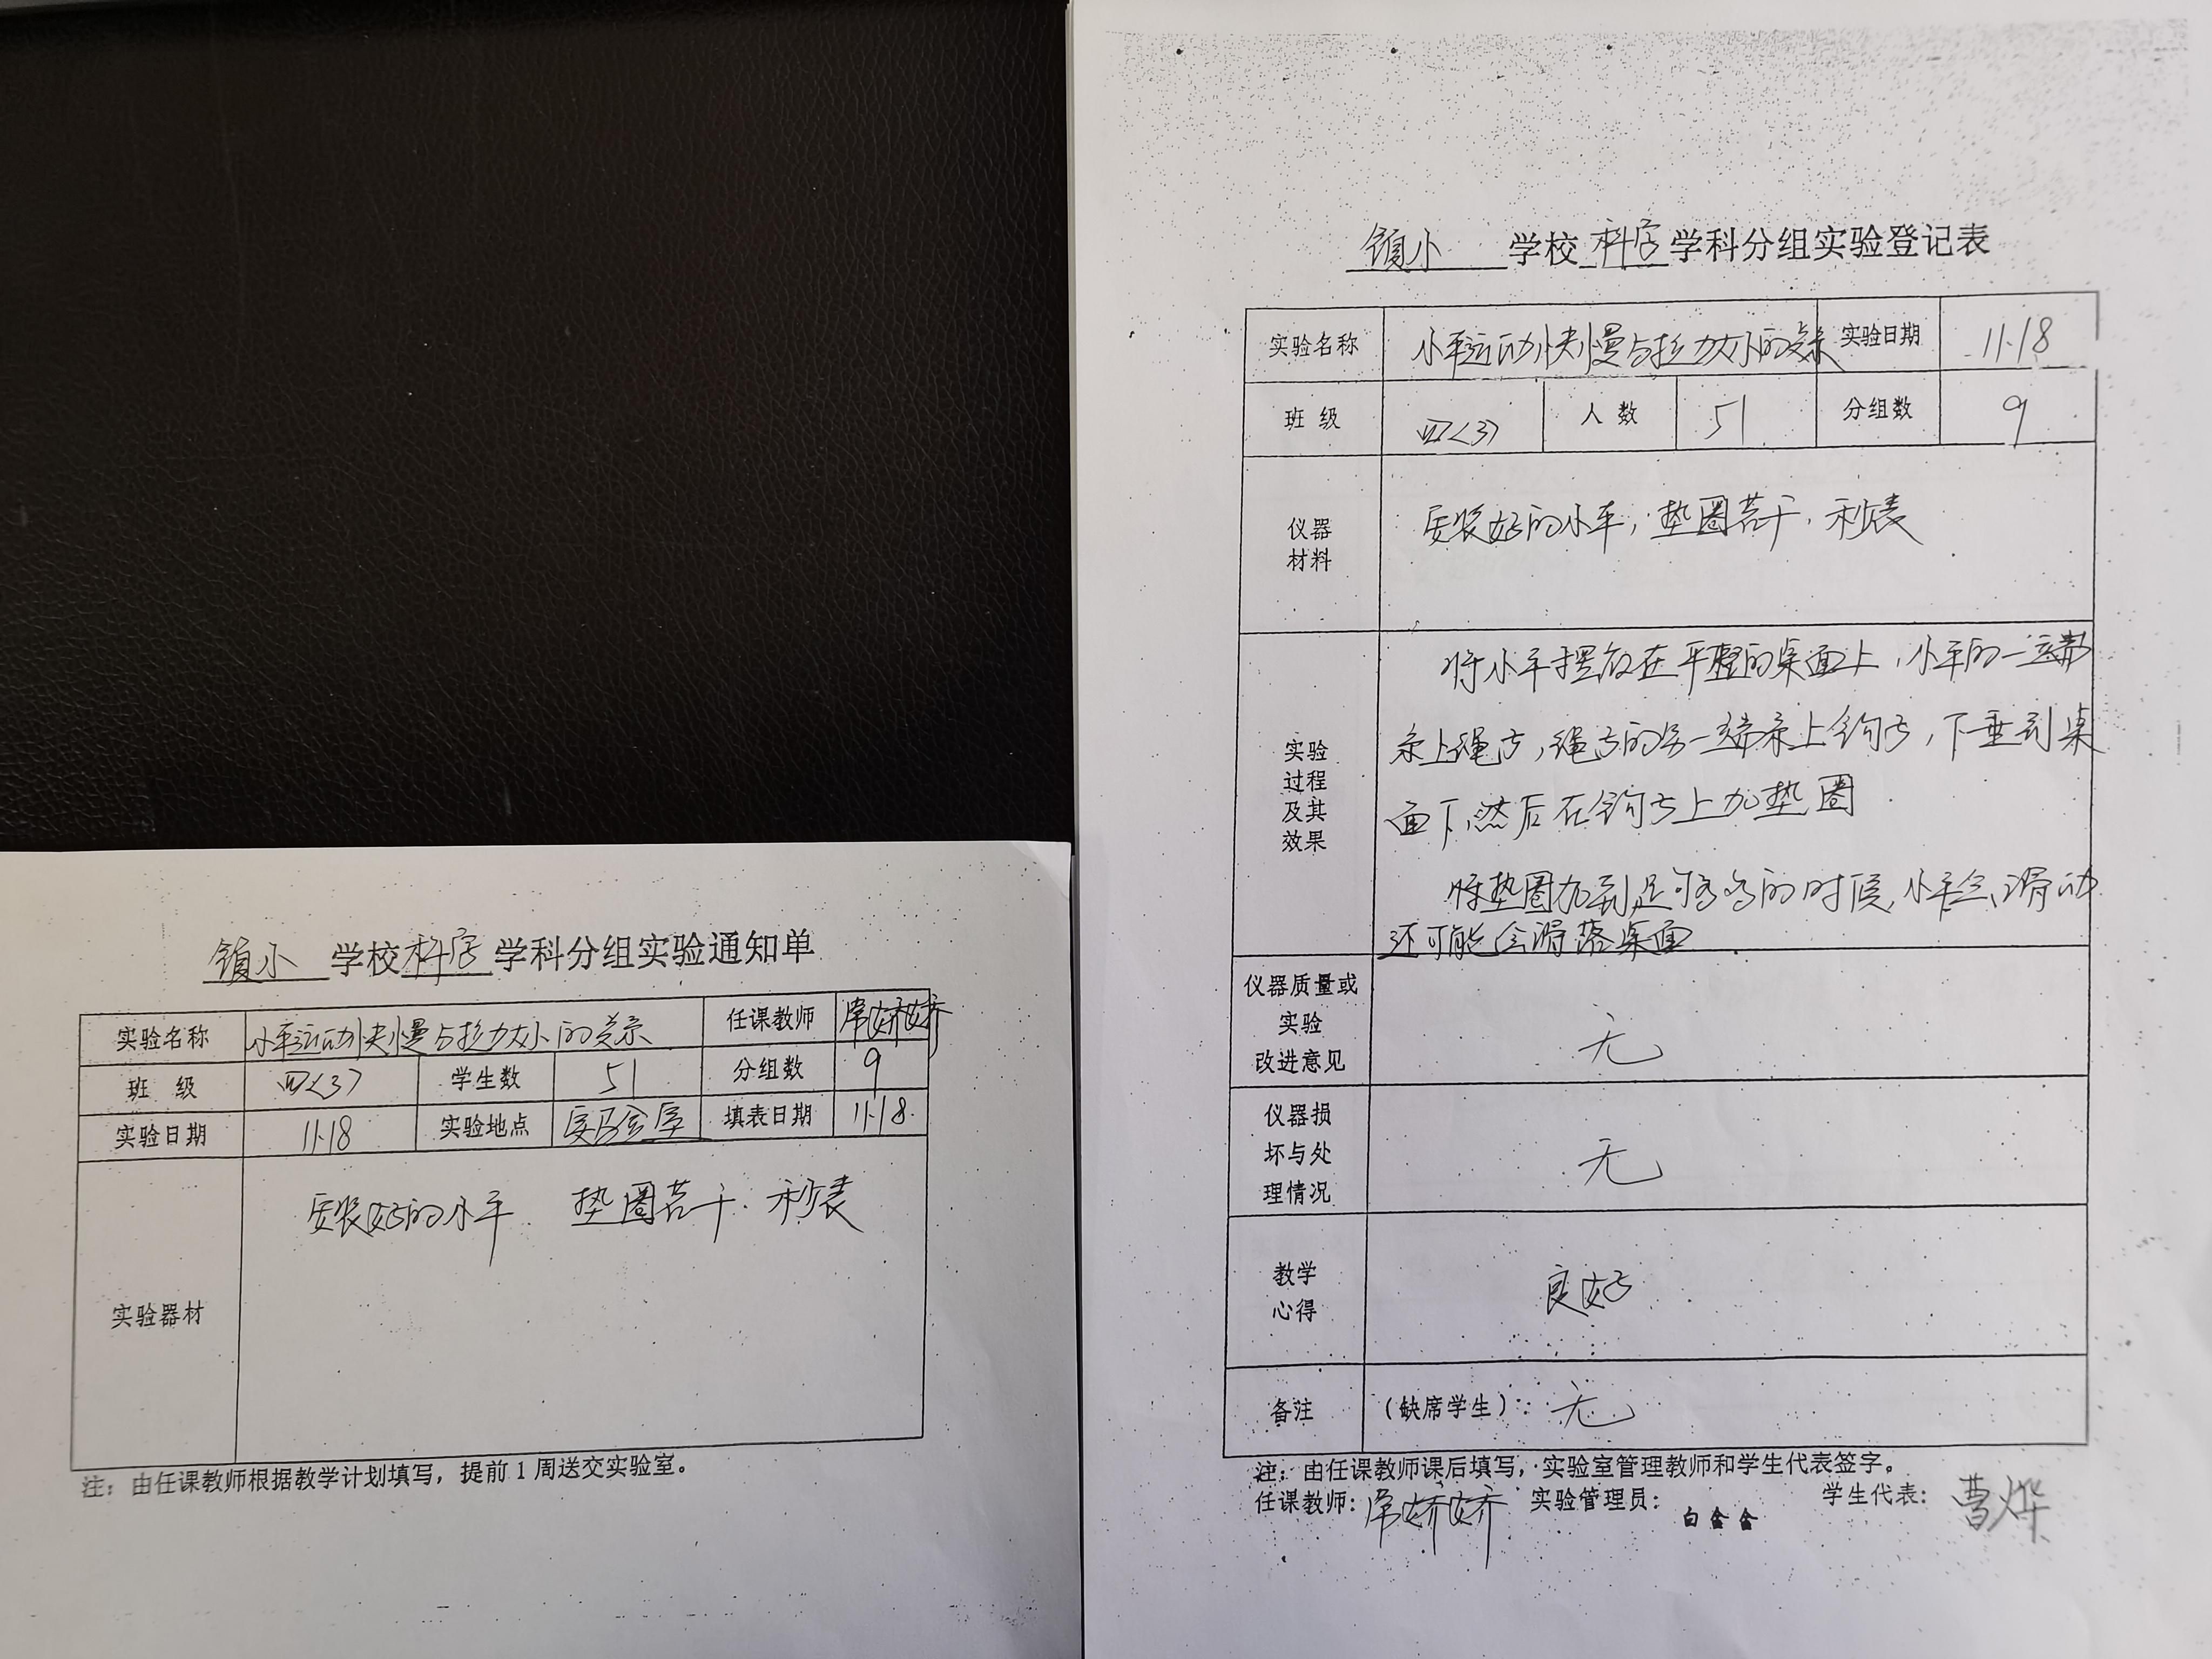 镇小 学校 科学 学科分组实验通知单
实验名称 小车运动快慢与拉力大小的关系 任课教师 常娇娇
班 级 四<3> 学生数 51 分组数 9
实验日期 11.18 实验地点 实验室 填表日期 11.18.
实验器材 安装好的小车 垫圈若干. 秒表
注：由任课教师根据教学计划填写，提前1周送交实验室。
镇小 学校 科学 学科分组实验登记表
实验名称 小车运动快慢与拉力大小的关系 实验日期 11.18
班 级 四<3> 人 数 51 分组数 9
仪器
材料
安装好的小车，垫圈若干，秒表
实验
过程
及其
效果
将小车摆放在平整的桌面上，小车的一端
系上绳子，绳子的另一端系上钩子，下垂到桌
面下，然后在钩子上加垫圈
将垫圈加到足够多的时候，小车会滑动
还可能会滑落桌面
仪器质量或
实验
改进意见
无
仪器损
坏与处
理情况
无
教学
心得
良好
备注 (缺席学生)：无
注：由任课教师课后填写，实验室管理教师和学生代表签字。
任课教师：常娇娇 实验管理员：白金金 学生代表：曹烨